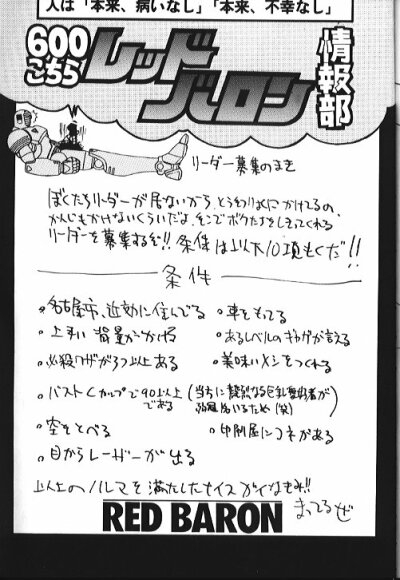 人は「本来、病いなし」「本来、不幸なし」
600
こちら
レッド
バロン
情報部
リーダー募集のまき
ぼくたちリーダーが居ないから
かんじもかけないくらいだよ、そこでボクたちを
リーダーを募集するぞ!! 条件は以下10項もくだ!!
条件
•名古屋市、近効に住んでる
•車をもってる
•上手い背景がかける
•あるレベルのギャグが言える
•必殺ワザが3つ以上ある
•美味いメシをつくれる
•バストCカップで90以上
である
(当方に
いるため(笑)
•空をとべる
•印刷屋にコネがある
•目からレーザーが出る
以上のノルマを満たしたナイスガイなキミ!!
まってるぜ
RED BARON